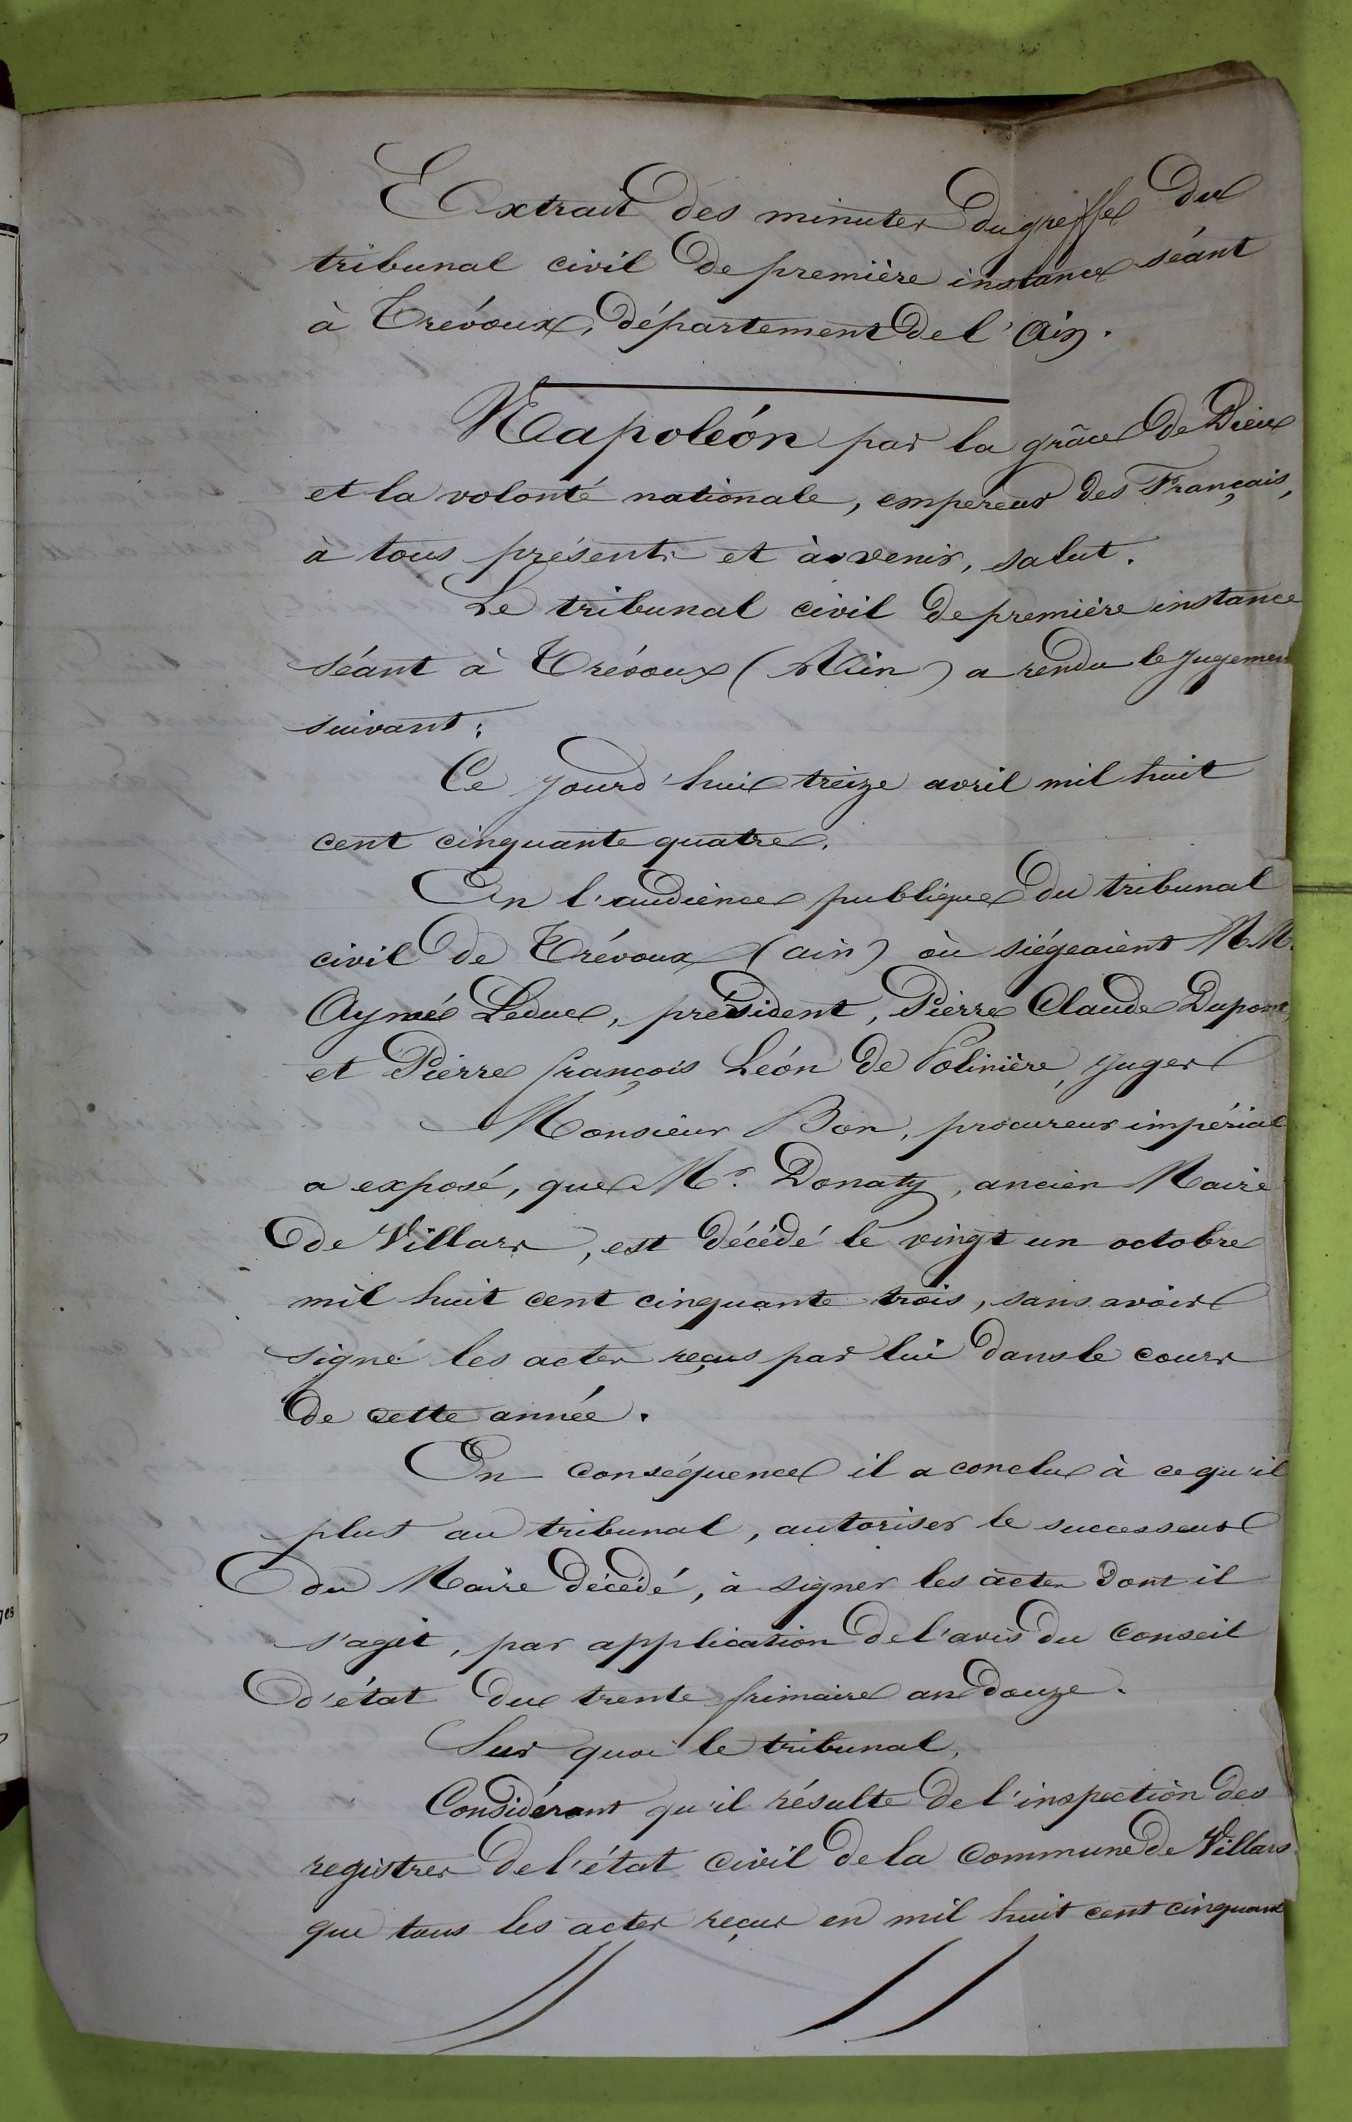 Extrait des minutes du greffe du
tribunal civil de première instance séant
à Trévoux, département de l'Ain.
Napoléon par la grâce de Dieu
et la volonté nationale, empereur des Français,
à tous présents et à venir, salut.
Le tribunal civil de première instance
séant à Trévoux (Ain) a rendu le jugemen
suivant:
Ce jourd'hui treize avril mil huit
cent cinquante quatre.
En l'audience publique du tribunal
civil de Trévoux (ain) où siégeaient M.M.
Aymé Leduc, président, Pierre Claude Dupont
et Pierre françois Léon de Polinière, juges
Monsieur Bon, procureur impérial
a exposé, que Mr. Donaty, ancien Maire
de Villars, est décédé le vingt un octobre
mil huit cent cinquante trois, sans avoir
signé les actes reçus par lui dans le cours
de cette année.
En conséquence il a conclu à ce qu'il
plut au tribunal, autoriser le successeur
du Maire décédé, à signer les actes dont il
s'agit, par application de l'avis du Conseil
d'état du trente frimaire an douze.
Sur quoi le tribunal,
Considérant qu'il résulte de l'inspection des
registres de l'état civil de la Commune de Villars
que tous les actes reçus en mil huit cent cinquante
ges